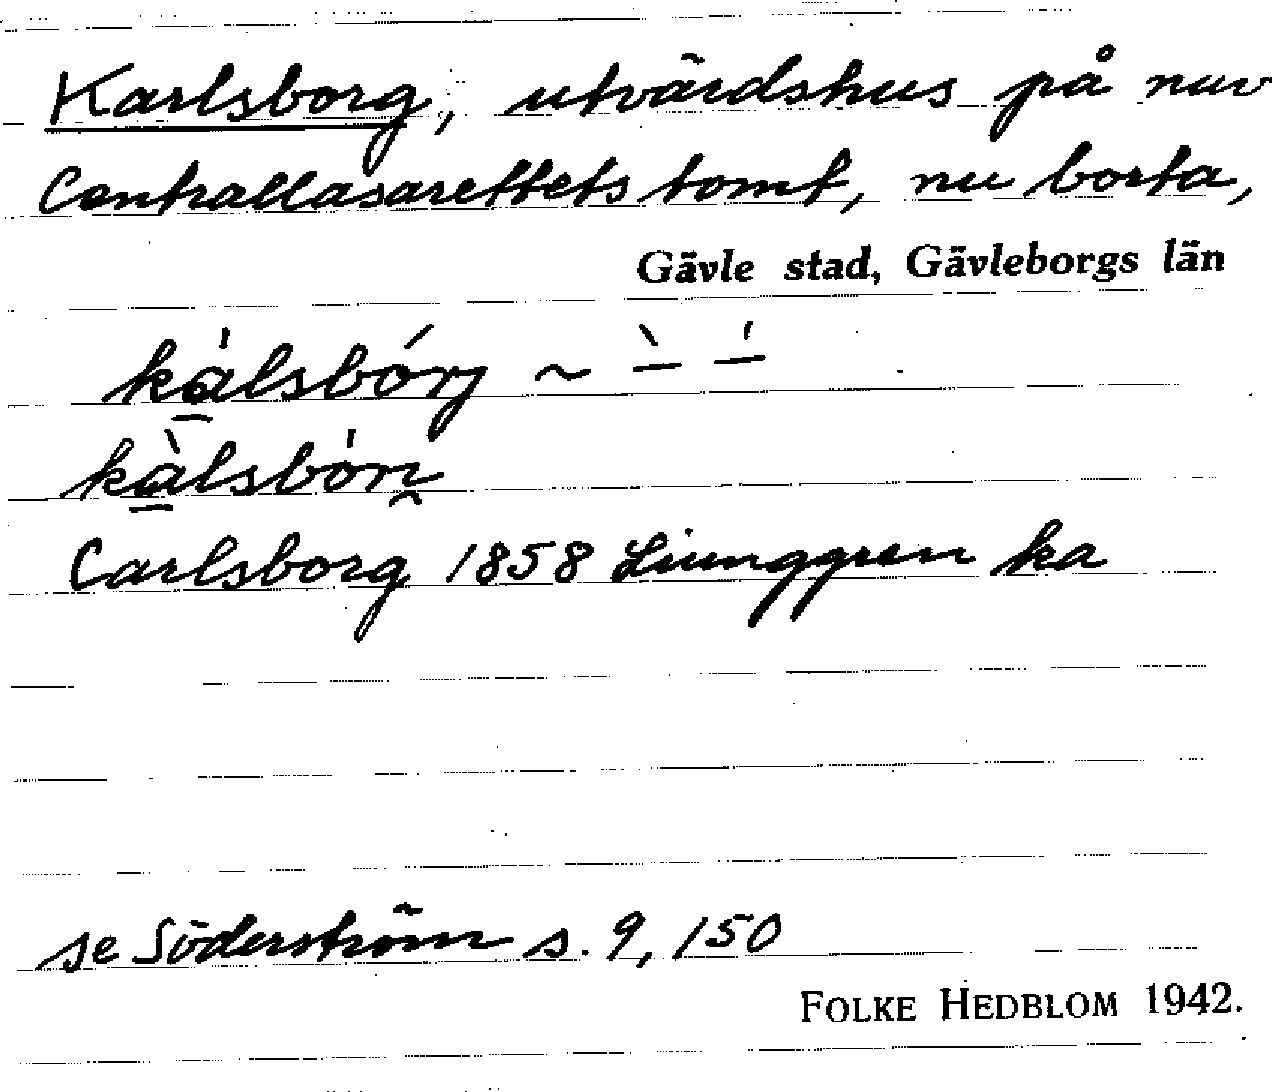 Karlsborg, utvärdshus på nuv
Centrallasarettets tomt, nu borta,
Gävle stad, Gävleborgs län
ka̱̍lsbórj ~ `– '–
kà̱lsbo̍ri̯
Carlsborg 1858 Ljunggren ka
se Söderström s. 9, 150
FOLKE HEDBLOM 1942.